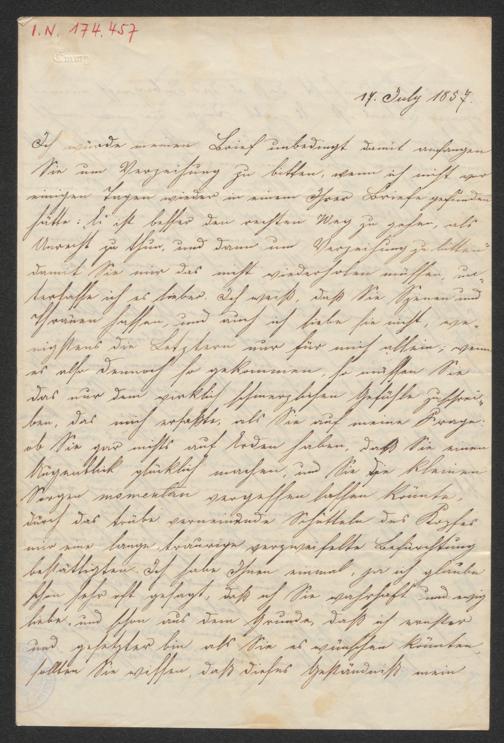 I.N. 174.457
Emmy
17. July 1857.
Ich würde meinen Brief unbedingt damit anfangen
Sie um Verzeihung zu bitten, wenn ich nicht vor
einigen Tagen wieder in einem Ihrer Briefe gefunden
hätte: Es ist besser den rechten Weg zu gehen, als
Unrecht zu thun, und dann um Verzeihung zu bitten
damit Sie mir das nicht wiederholen müssen, un-
terlasse ich es lieber. Ich weiß, daß Sie Szenen und
Thränen hassen, und auch ich liebe sie nicht, we-
nigstens die Letztern nur für mich allein; wenn
es also dennoch so gekommen, so müssen Sie
das nur dem wirklich schmerzlichen Gefühle zuschrei-
ben, das mich erfaßte, als Sie auf meine Frage:
ob Sie gar nichts auf Erden haben, daß Sie einen
Augenblick glücklich machen, und Sie die kleinen
Sorgen momentan vergessen lassen könnte,
durch das trübe verneinende Schütteln des Kopfes
mir eine lange, traurige verzweifelte Befürchtung
bestättigten. Ich habe Ihnen einmal, ja ich glaube
schon sehr oft gesagt, daß ich Sie wahrhaft und ewig
liebe, und schon aus dem Grunde, daß ich ernster
und gesetzter bin als Sie es wünschen könnten,
sollten Sie wissen, daß dieses Geständniß mein